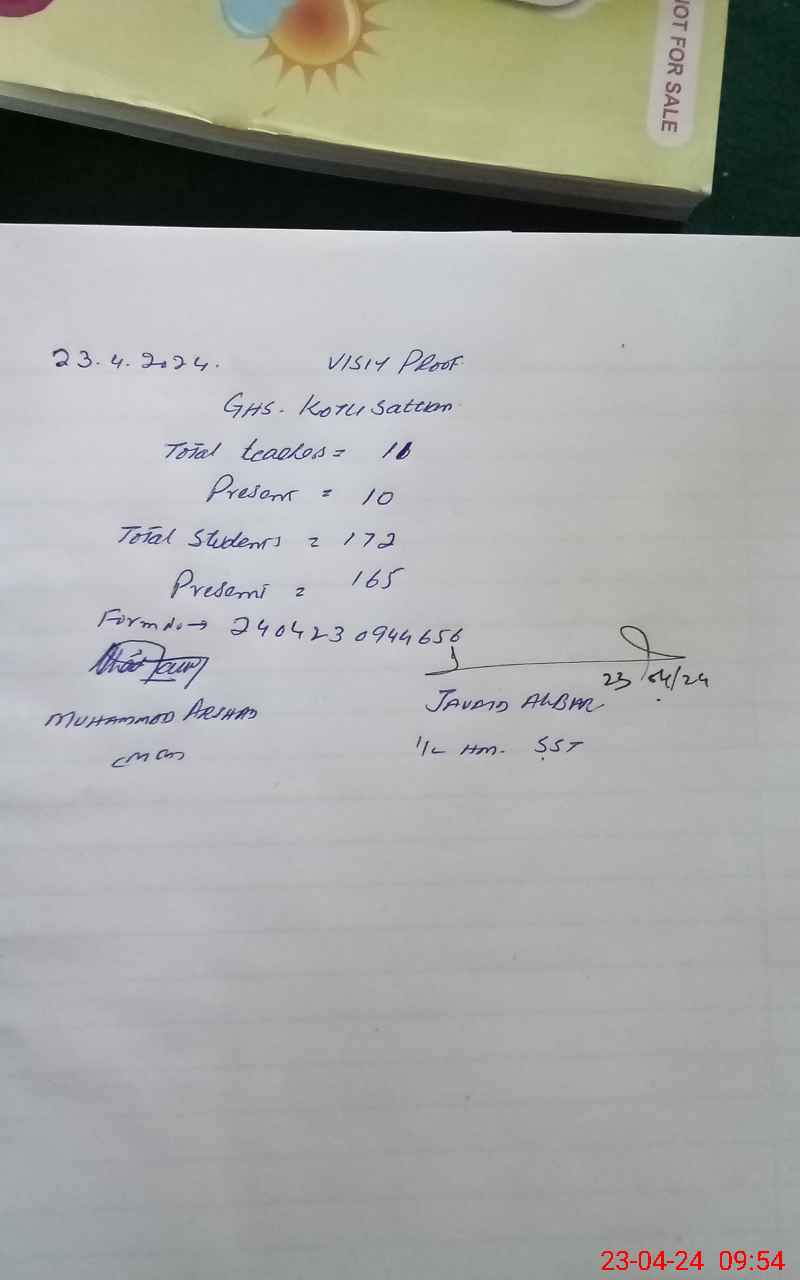 NOT FOR SALE
23.4.2024. VISIT PROOF
GHS. Kotli Sattian
Total teachers =
Present = 10
Total Students = 172
Present = 165
Form No → 2404230944656
23/04/24
MUHAMMAD ARSHAD
JAVAID AKBAR
I/C HM. SST
23-04-24 09:54